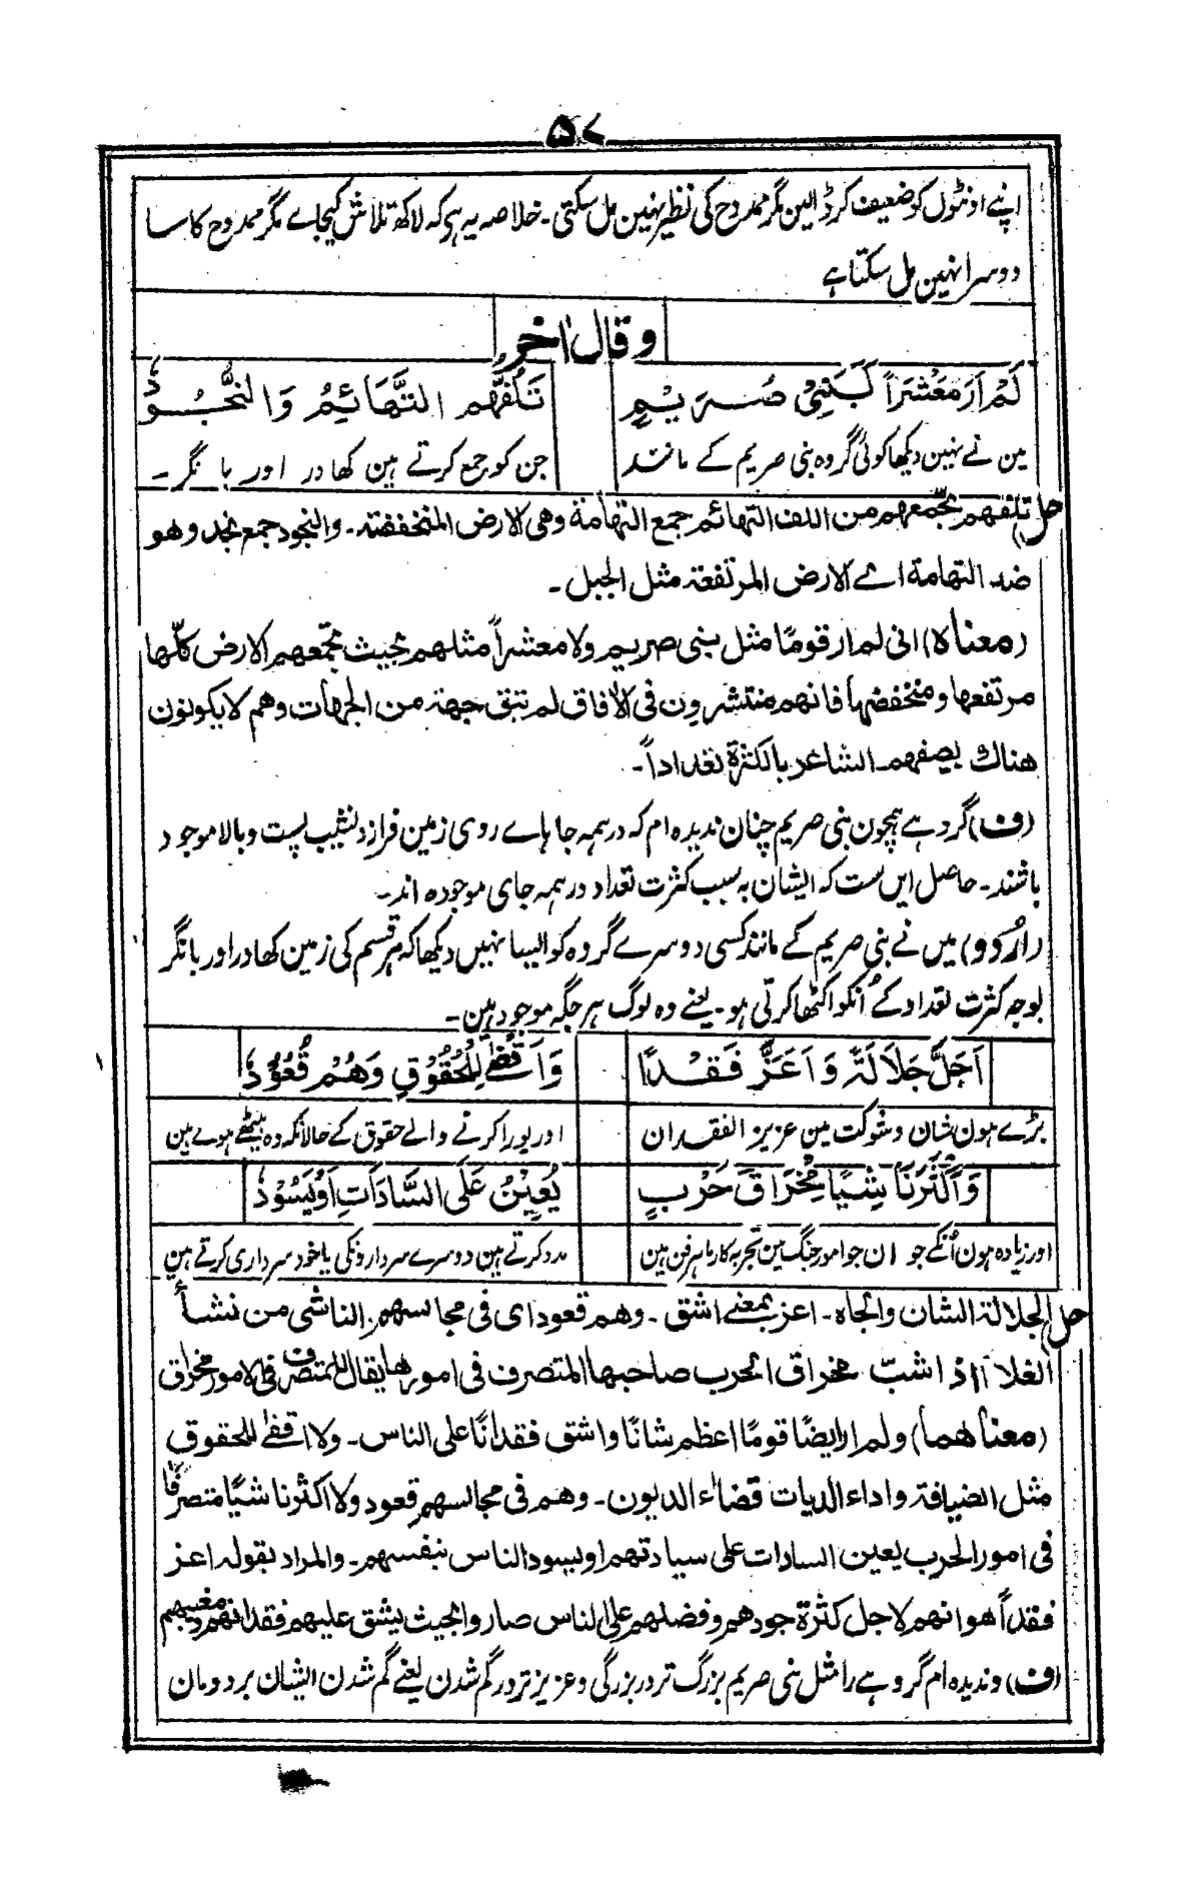 ۵۷
اپنے اونٹوں کو ضعیف کر ڈالین مگر ممدوح کی نظیر نہین مل سکتی۔ خلاصہ یہ ہی کہ لاکھ تلاش کیجاے مگر ممدوح کا سا
دوسرا نہین مل سکتا ہے
وقال اٰخر
لَمْ اَرَ مَعْشَرًا كَبَنِيْ صُرَيْمٍ تَلُفُّهُم التَّهَائِمُ وَالنُّجُوْدُ
مین نے نہین دیکھا کوئی گروہ بنی صریم کے مانند جن کو جمع کرتے ہین کھادر اور بانگر۔
حل تلفهم تجمعهم من اللف التهائم جمع التهامة وهى الارض المنخفضة۔ والنجود جمع نجد وهو
ضد التهامة اے الارض المرتفعة مثل الجبل۔
(معناہ) انى لم ار قومًا مثل بنى صريم ولا معشراً مثلهم بحيث تجمعهم الارض كلّها
مرتفعها ومنخفضها فانهم منتشرون فى الاٰفاق لم تبق جهة من الجهات وهم لا يكونون
هناك يصفهم الشاعر بالكثرة تعداداً۔
(ف) گروہے ہمچون بنی صریم چنان ندیدہ ام کہ در ہمہ جاہاے روی زمین فراز و نشیب پست و بالا موجود
باشند۔ حاصل ایں ست کہ ایشان بہ سبب کثرت تعداد در ہمہ جای موجودہ اند۔
(اُردو) میں نے بنی صریم کے مانند کسی دوسرے گروہ کو ایسا نہیں دیکھا کہ ہر قسم کی زمین کھادر اور بانگر
بوجہ کثرت تعداد کے اُنکو اکٹھا کرتی ہو۔ یعنے وہ لوگ ہر جگہ موجود ہین۔
اَجَلَّ جَلَالَةً وَاَعَزَّ فَقْدًا وَاَقْضٰى لِلْحُقُوْقِ وَهُمْ قُعُوْدُ
بڑے ہون شان و شوکت مین عزیز الفقدان اور پورا کرنے والے حقوق کے حالانکہ وہ بیٹھے ہوے ہین
وَاَكْثَرَنَا شِيًا مِخْرَاقَ حَرْبٍ يُعِيْنُ عَلَى السَّادَاتِ اَوْيَسُوْدُ
اور زیادہ ہون اُنکے جوان جو امور جنگ مین تجربہ کار ماہر فن ہین مدد کرتے ہین دوسرے سردارونکی یا خود سرداری کرتے ہین
حل الجلالة الشان والجاه۔ اعز بمعنے اشق۔ وهم قعود اى فى مجالسهم۔ الناشى من نشأ
الغلام اذا شبّ مخراق الحرب صاحبها المتصرف فى امورها يقال للمتصرف فى الامور مخراق
(معناهما) ولم ار ايضًا قومًا اعظم شانًا واشق فقدانًا على الناس۔ ولا اقضٰے للحقوق
مثل الضيافة واداء الديات قضاء الديون۔ وهم فى مجالسهم قعود ولا اكثر ناشيًا متصرفًا
فى امور الحرب يعين السادات على سيادتهم او يسود الناس بنفسهم۔ والمراد بقوله اعز
فقداً هو انهم لاجل كثرة جودهم وفضلهم على الناس صاروا بحيث يشق عليهم فقدانهم ومغيبهم
(ف) و ندیدہ ام گروہے را مثل بنی صریم بزرگ تر در بزرگی و عزیز تر در گم شدن یعنے گم شدن ایشان بر دومان